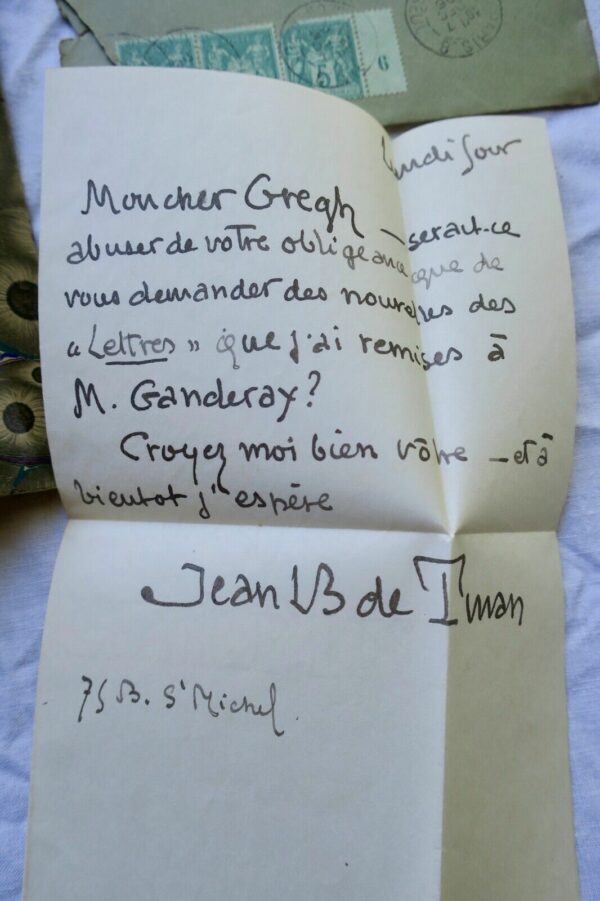 5
6
PARIS
Lundi soir
Mon cher Gregh — serait-ce
abuser de votre obligeance que de
vous demander des nouvelles des
« Lettres » que j'ai remises à
M. Ganderax?
Croyez moi bien vôtre — et à
bientot j'espère
Jean B de Tinan
75 B. St Michel.